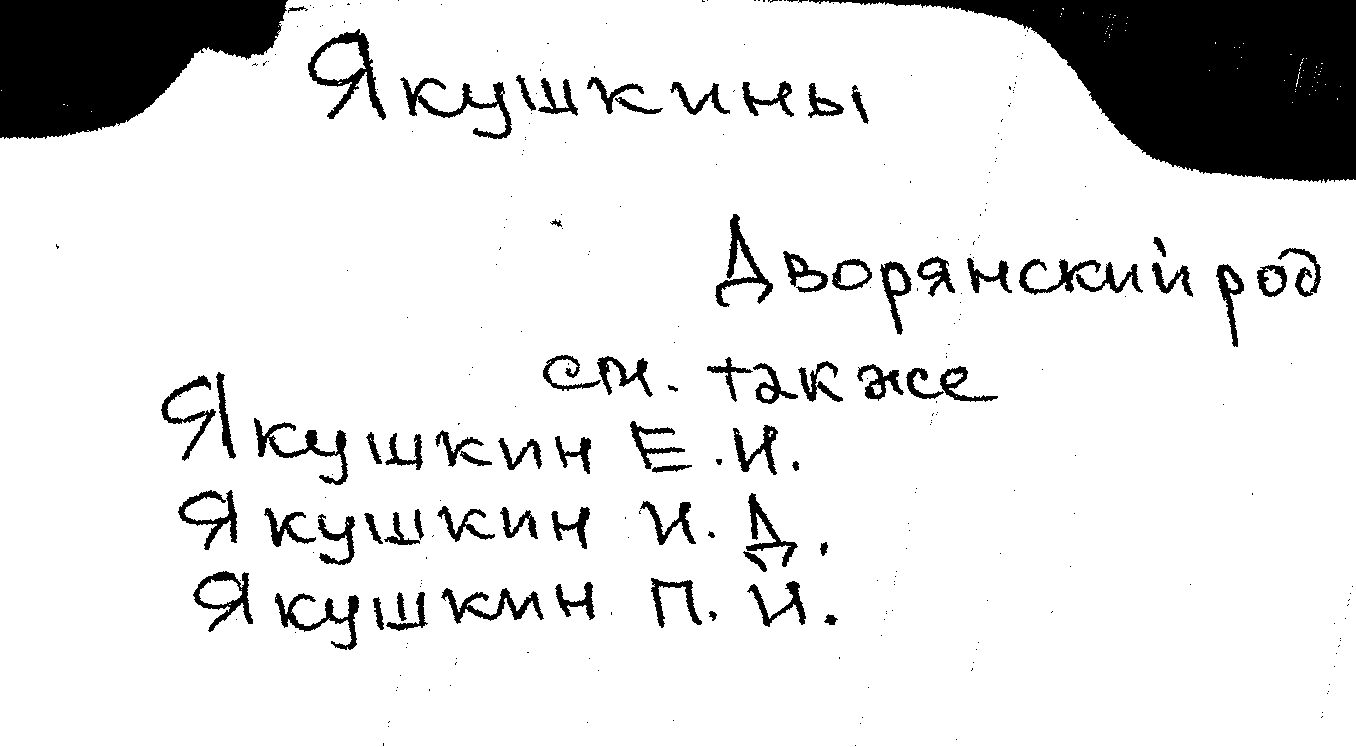 Якушкины
Дворянский род
см. также
Якушкин Е.И.
Якушкин И.Д.
Якушкин П.И.